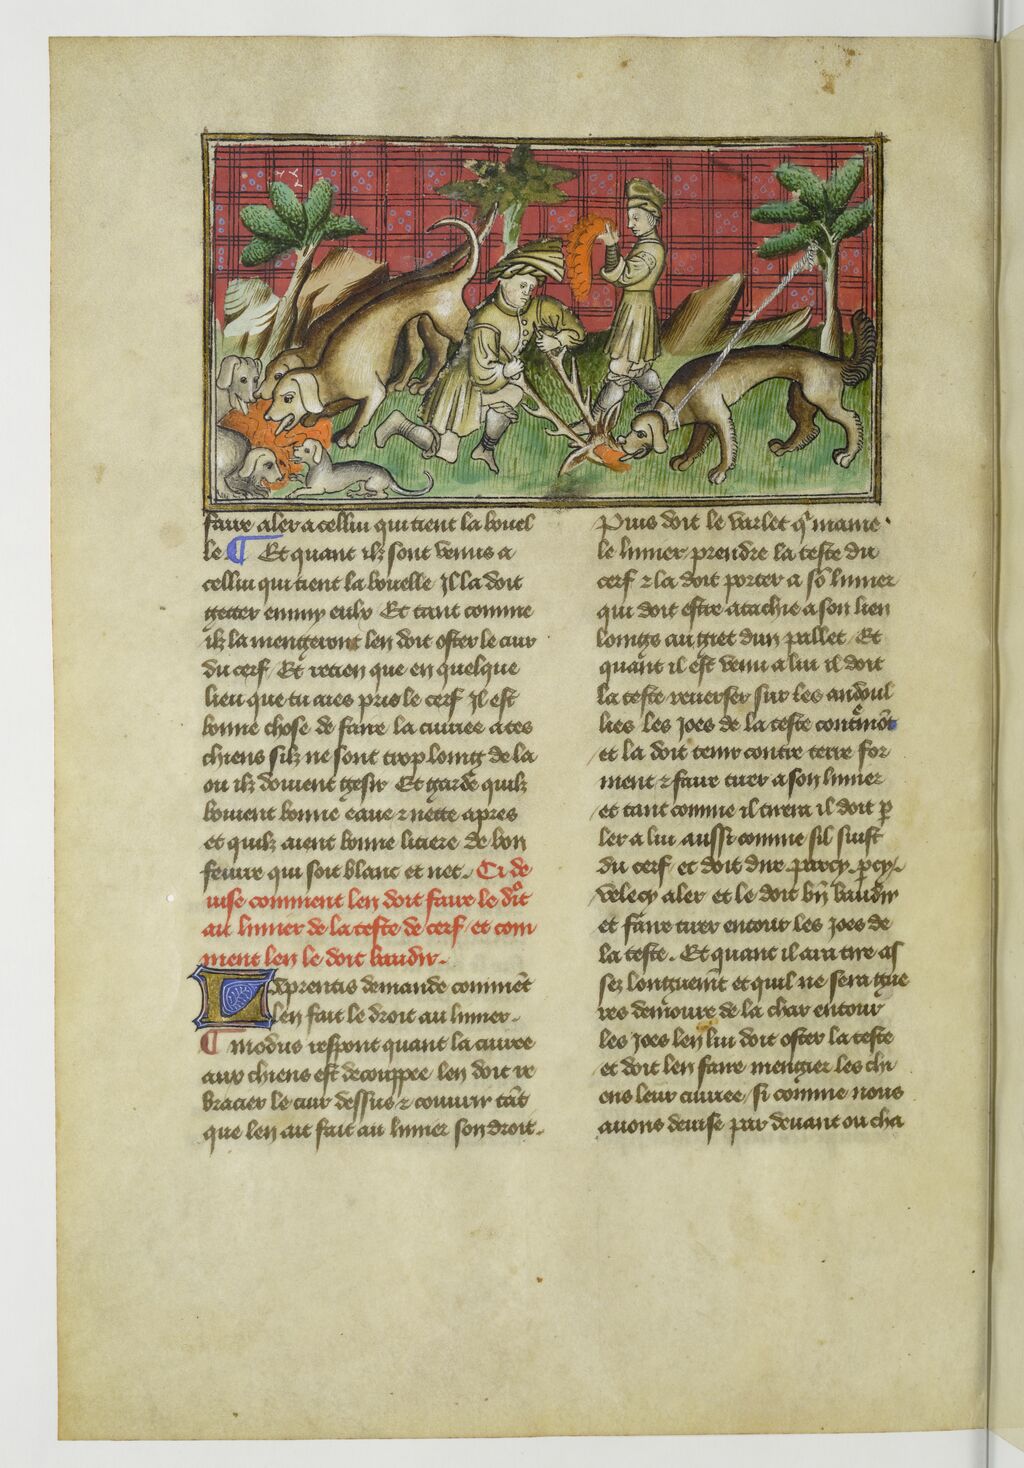 faire aler a cellui qui tient la bouel
le Et quant ilz sont venus a
cellui qui tient la bouelle Il la doit
getter enmy eulx Et tant comme
ilz la mengeront len doit oster le cuir
du cerf Et retien que en quelque
lieu que tu aies pris le cerf Il est
bonne chose de faire la cuiree a tes
chiens silz ne sont trop loing de la
ou ilz doivent gesir Et garde quilz
boivent bonne eaue ⁊ nette apres
et quilz aient bonne litiere de bon
feurre qui soit blanc et net. Ci de
vise comment len doit faire le dͦit
au limier de la teste de cerf et com
ment len le doit baudir.
L Aprentis demande commēt
len fait le droit au limier.
modus respont quant la cuiree
aux chiens est decouppee len doit re
bracier le cuir dessus ⁊ couvrir tāt
que len ait fait au limier son droit.
Puis doit le varlet qͥ maine
le limier prendre la teste du
cerf ⁊ la doit porter a sō limier
qui doit estre atachie a son lien
loingz au giet dun pallet Et
quant il est venu a lui il doit
la teste reverser sur les andoul
lies les joes de la teste contremōt
et la doit tenir contre terre for
ment ⁊ faire tirer a son limier
et tant comme il tirera il doit ꝑ
ler a lui aussi comme sil suist
du cerf et doit dire parcy. ꝑcy.
velecy aler et le doit bn̄ baudir
et faire tirer entour les joes de
la teste. Et quant il ara tire as
sez longuemt̄ et quil ne sera gue
res demoure de la char entour
les joes len lui doit oster la teste
et doit len faire mengier les chi
ens leur cuiree si comme nous
avons devise par devant ou cha